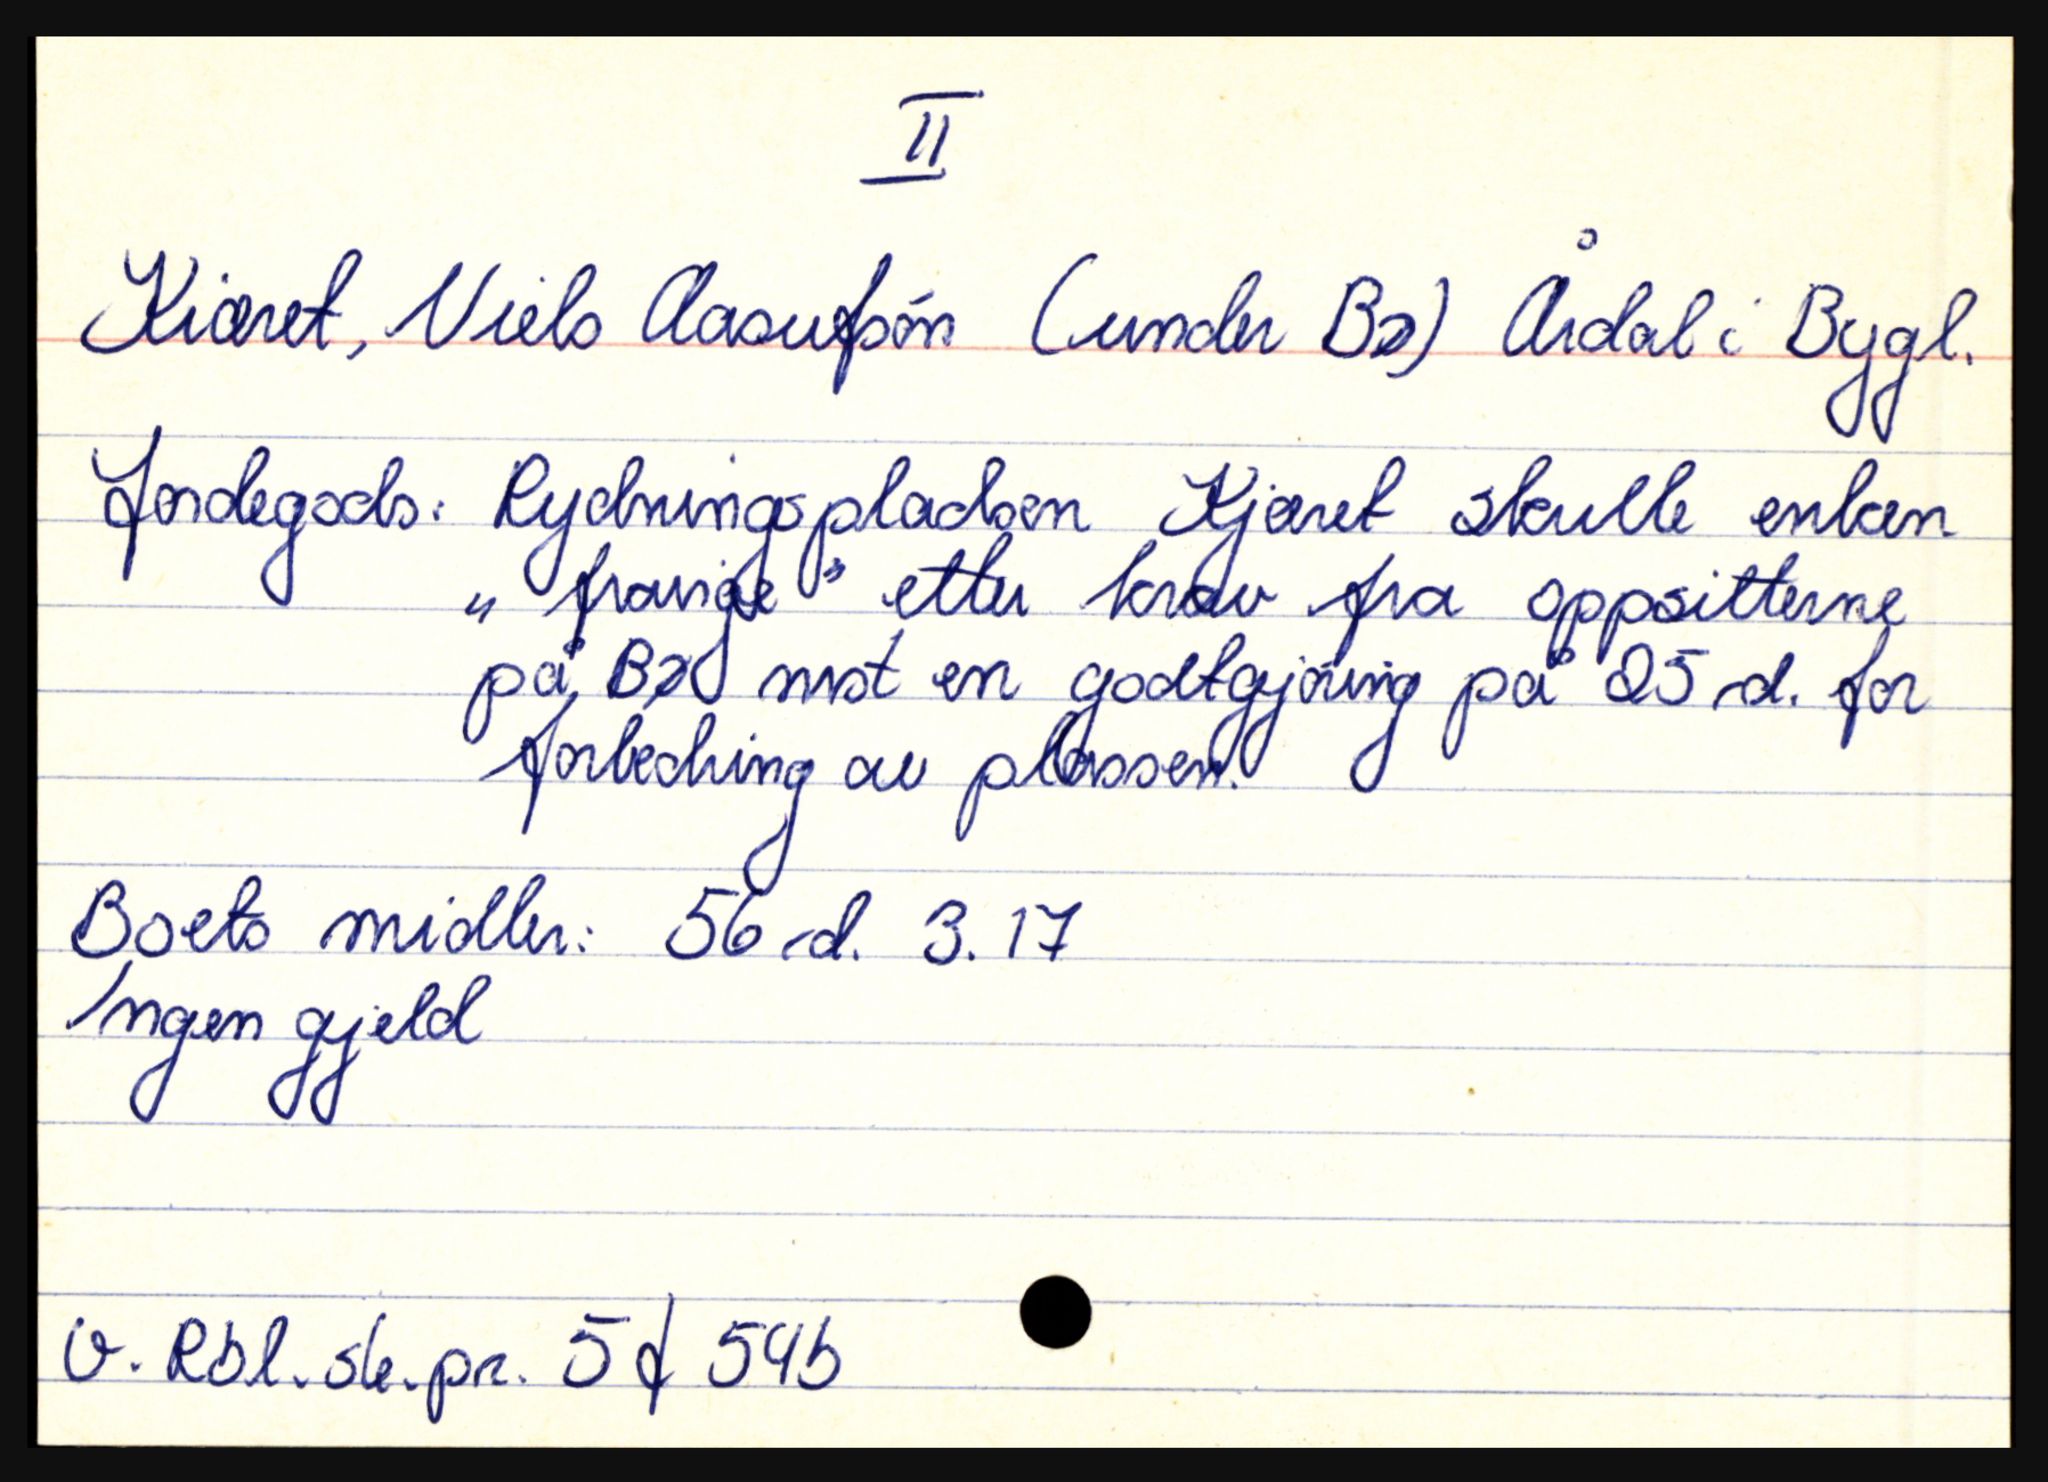 II
Kiæret, Niels Aasufsøn (under Bø) Årdal i Bygl.
Jordegods: Rydningspladsen Kjæret skulle enken
„ fravige" etter krav fra oppsitterne
på Bø mot en godtgjøring på 25 rd. for
forbedring av plassen.
Boets midler: 56 rd. 3. 17
Ingen gjeld
V. Rbl. sk. pr. 5 f 54b